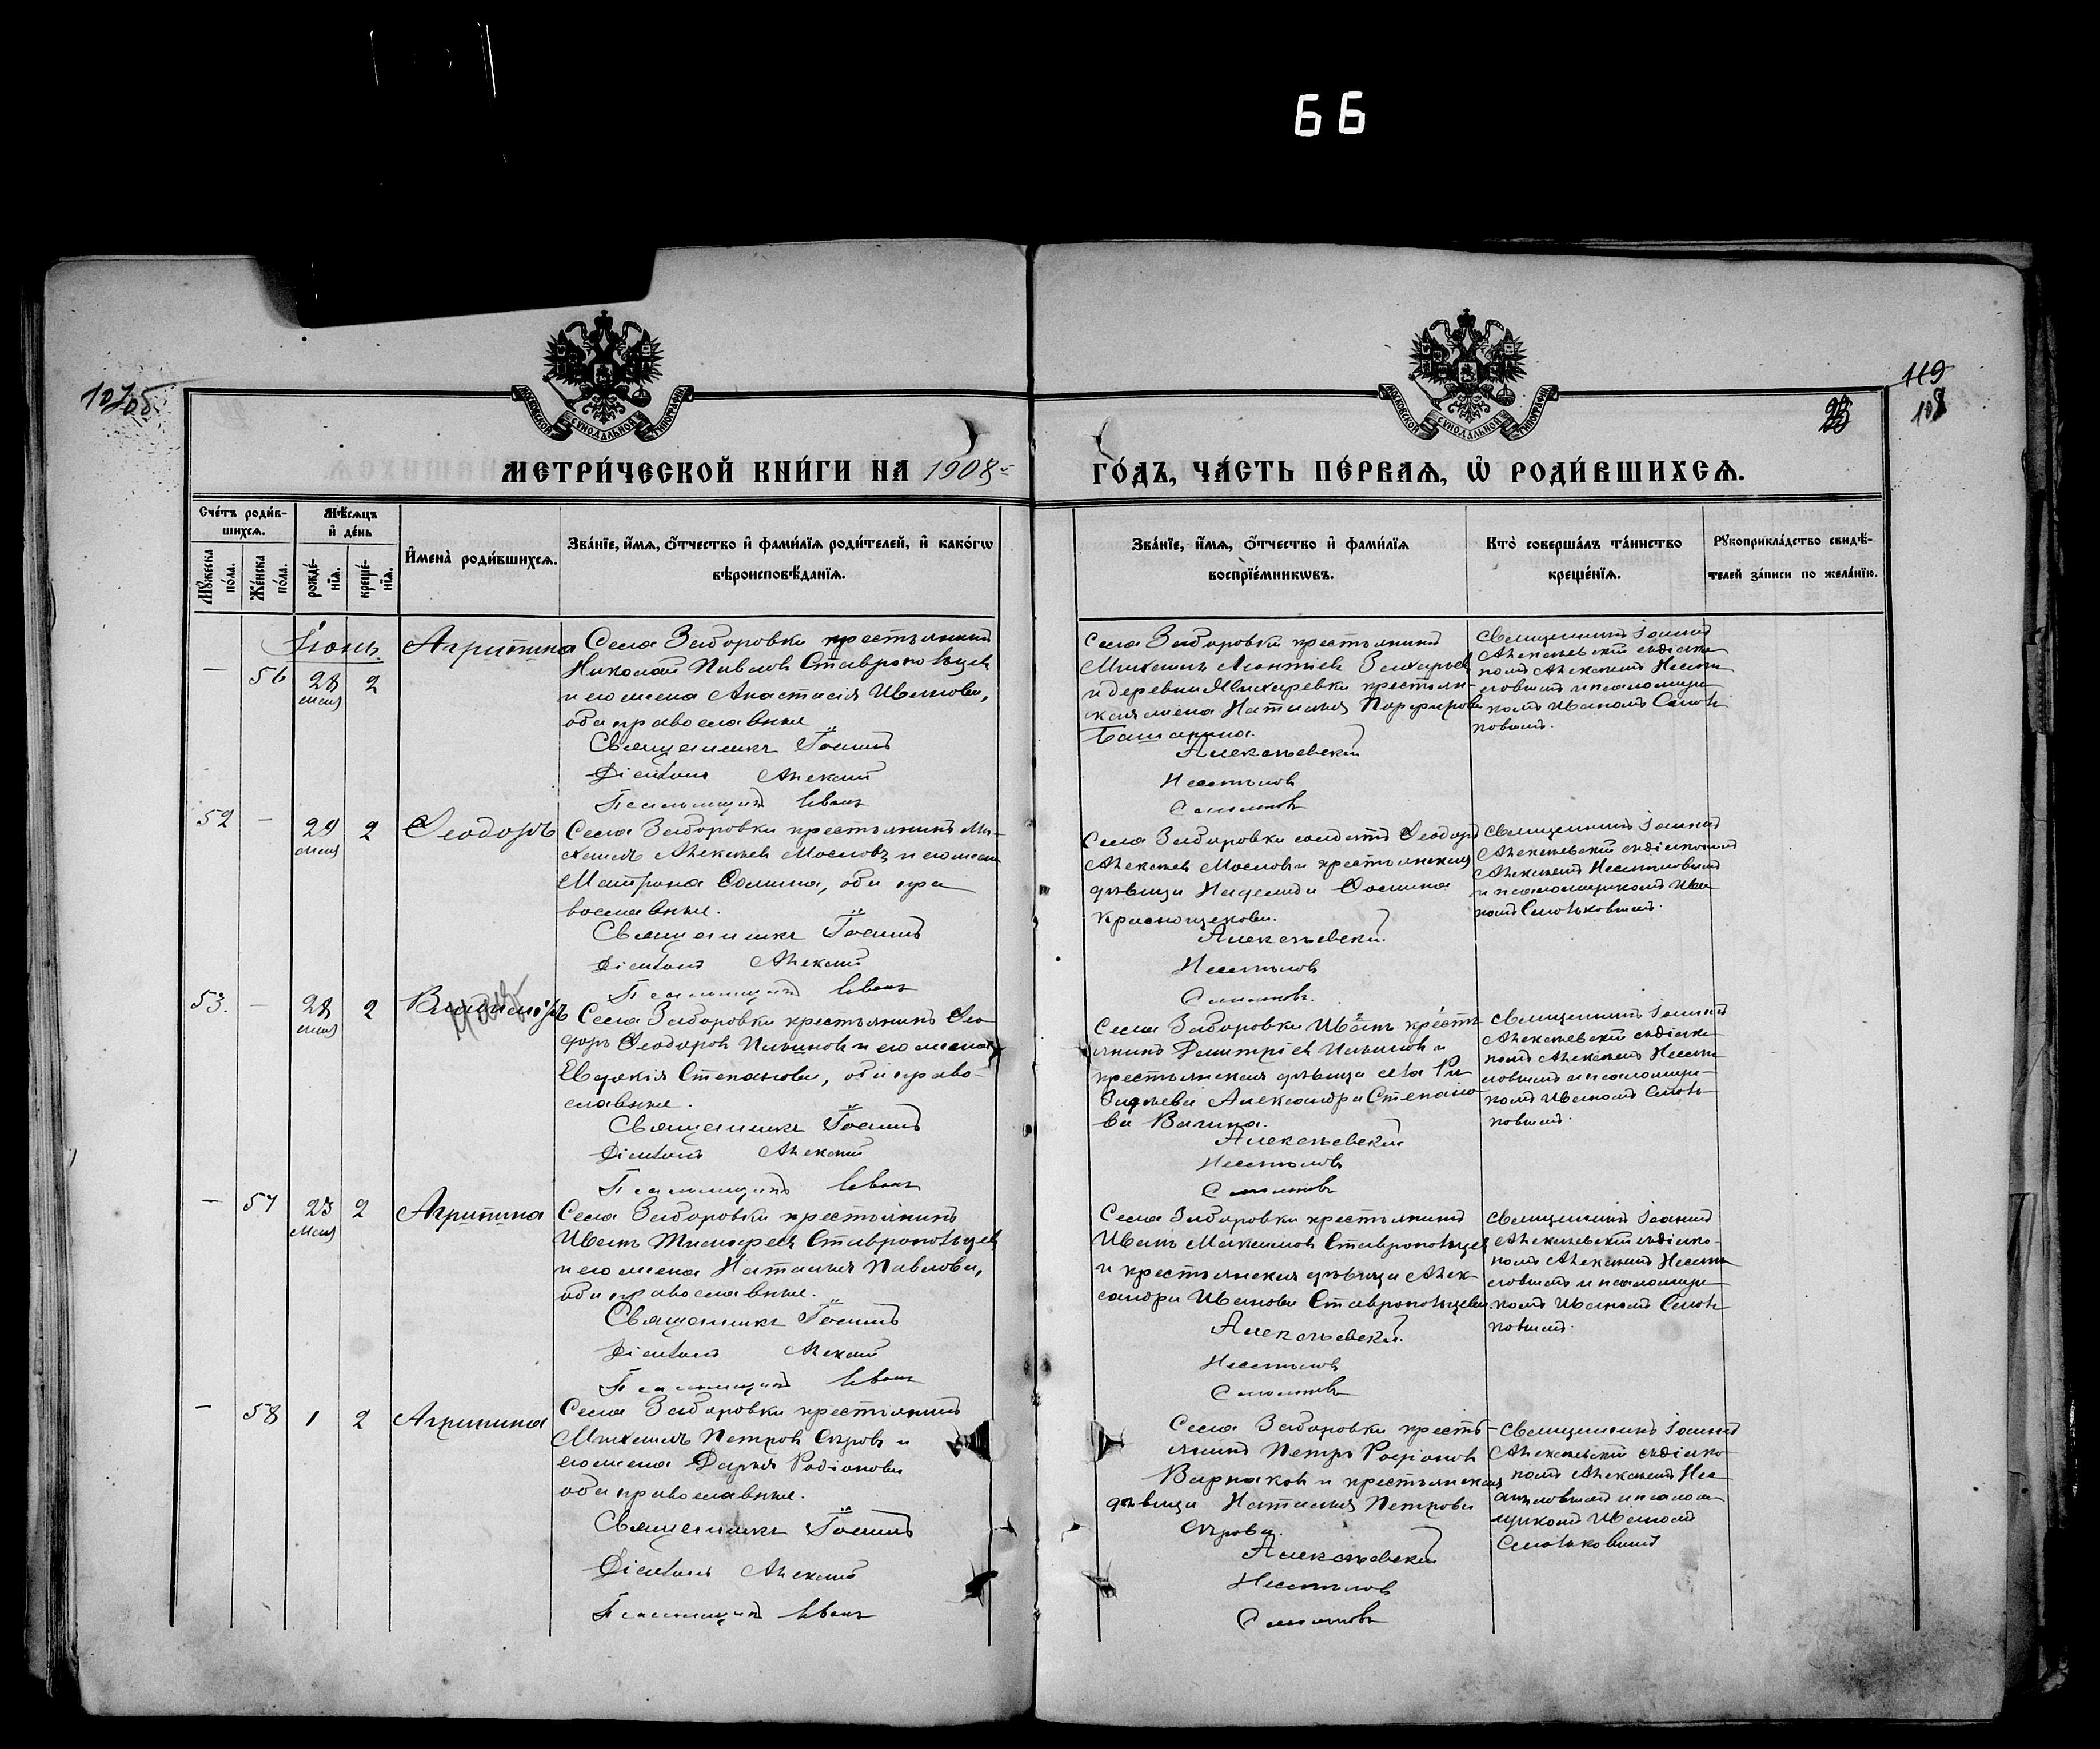 66
107об
119
108
МОСКОВСКОЙ СѴНОДАЛЬНОЙ ТИПОГРАФІИ
МОСКОВСКОЙ СѴНОДАЛЬНОЙ ТИПОГРАФІИ
МЕТРИ́ЧЕСКОЙ КНИ́ГИ НА 1908й
ГО́ДЪ, ЧА́СТЬ ПЕ́РВАѦ, Ѡ҆ РОДИ́ВШИХСѦ.
Сче́тъ роди́в-
шихсѧ.
Мꙋ́жеска по́ла.
Же́нска по́ла.
Мѣ́сѧцъ
и҆ де́нь
рожде́-нїѧ.
креще́-нїѧ.
И҆мена̀ роди́вшихсѧ.
Зва́нїе, и҆́мѧ, ѻ҆́тчество и҆ фами́лїѧ роди́телей, и҆ како́гѡ
вѣроисповѣ́данїѧ.
Зва́нїе, и҆́мѧ, ѻ҆́тчество и҆ фами́лїѧ
воспрїе́мникѡвъ.
Кто̀ соверша́лъ та́инство
креще́нїѧ.
Рꙋкоприкла́дство свидѣ́-
телей за́писи по жела́нїю.
Іюнь.
— 56 28 мая 2
Агрипина
Села Заборовки крестьянинъ
Николай Павлов Ставропольцев
и его жена Анастасія Иванова,
оба православные
Священникъ Іоаннъ
Діаконъ Алексій
Псаломщикъ Иванъ
Села Заборовки крестьянинъ
Михаилъ Леонтіев Захарьев
и деревни Жихаревки крестьян-
ская жена Наталья Порфирова
Башарина.
Алексѣевскій
Несмѣлов
Смольков
Священникъ Іоаннъ
Алексѣевскій съ діако-
номъ Алексѣемъ Несмѣ-
ловымъ и псаломщи-
комъ Иваномъ Смоль-
ковымъ.
52 — 29 мая 2
Ѳеодоръ
Села Заборовки крестьянинъ Ми-
хаилъ Алексѣев Маслов и его жена
Матрона Ѳомина, оба пра-
вославные.
Священникъ Іоаннъ
Діаконъ Алексій
Псаломщикъ Иванъ
Села Заборовки солдатъ Ѳеодоръ
Алексѣев Маслов и крестьянская
дѣвица Надежда Ѳомина
Краснощекова.
Алексѣевскій
Несмѣлов
Смольков.
Священникъ Іоаннъ
Алексѣевскій съ діакономъ
Алексѣемъ Несмѣловымъ
и псаломщикомъ Ива-
номъ Смольковымъ.
53. — 28 мая 2
Владиміръ
Села Заборовки крестьянинъ Ѳео-
доръ Ѳеодоров Ильинов и его жена
Евдокія Степанова, оба право-
славные.
Священникъ Іоаннъ
Діаконъ Алексій
Псаломщикъ Иванъ
Села Заборовки Иванъ кресть-
янинъ Димитріев Ильинов и
крестьянская дѣвица села Ра-
Александра Степано-
ва Вагина.
Алексѣевскій
Несмѣлов
Смольков
Священникъ Іоаннъ
Алексѣевскій съ діако-
номъ Алексѣемъ Несмѣ-
ловымъ и псаломщи-
комъ Иваномъ Смоль-
ковымъ.
— 57 23 мая 2
Агрипина
Села Заборовки крестьянинъ
Иванъ Тимофеев Ставропольцев
и его жена Наталья Павлова,
оба православные.
Священникъ Іоаннъ
Діаконъ Алексій
Псаломщикъ Иванъ
Села Заборовки крестьянинъ
Иванъ Максимов Ставропольцев
и крестьянская дѣвица Алек-
сандра Иванова Ставропольцева
Алексѣевскій.
Несмѣлов
Смольков
Священникъ Іоаннъ
Алексѣевскій съ діако-
номъ Алексѣемъ Несмѣ-
ловымъ и псаломщи-
комъ Иваномъ Смоль-
ковымъ.
— 58 1 2
Агрипина
Села Заборовки крестьянинъ
Михаилъ Петров Сѣров и
его жена Дарья Родіонова
оба православные.
Священникъ Іоаннъ
Діаконъ Алексій
Псаломщикъ Иванъ
Села Заборовки кресть-
янинъ Петръ Родіонов
Варнаков и крестьянская
дѣвица Наталья Петрова
Сѣрова.
Алексѣевскій
Несмѣлов
Смольков
Священникъ Іоаннъ
Алексѣевскій съ діако-
номъ Алексѣемъ Нес-
мѣловымъ и псалом-
щикомъ Иваномъ
Смольковымъ